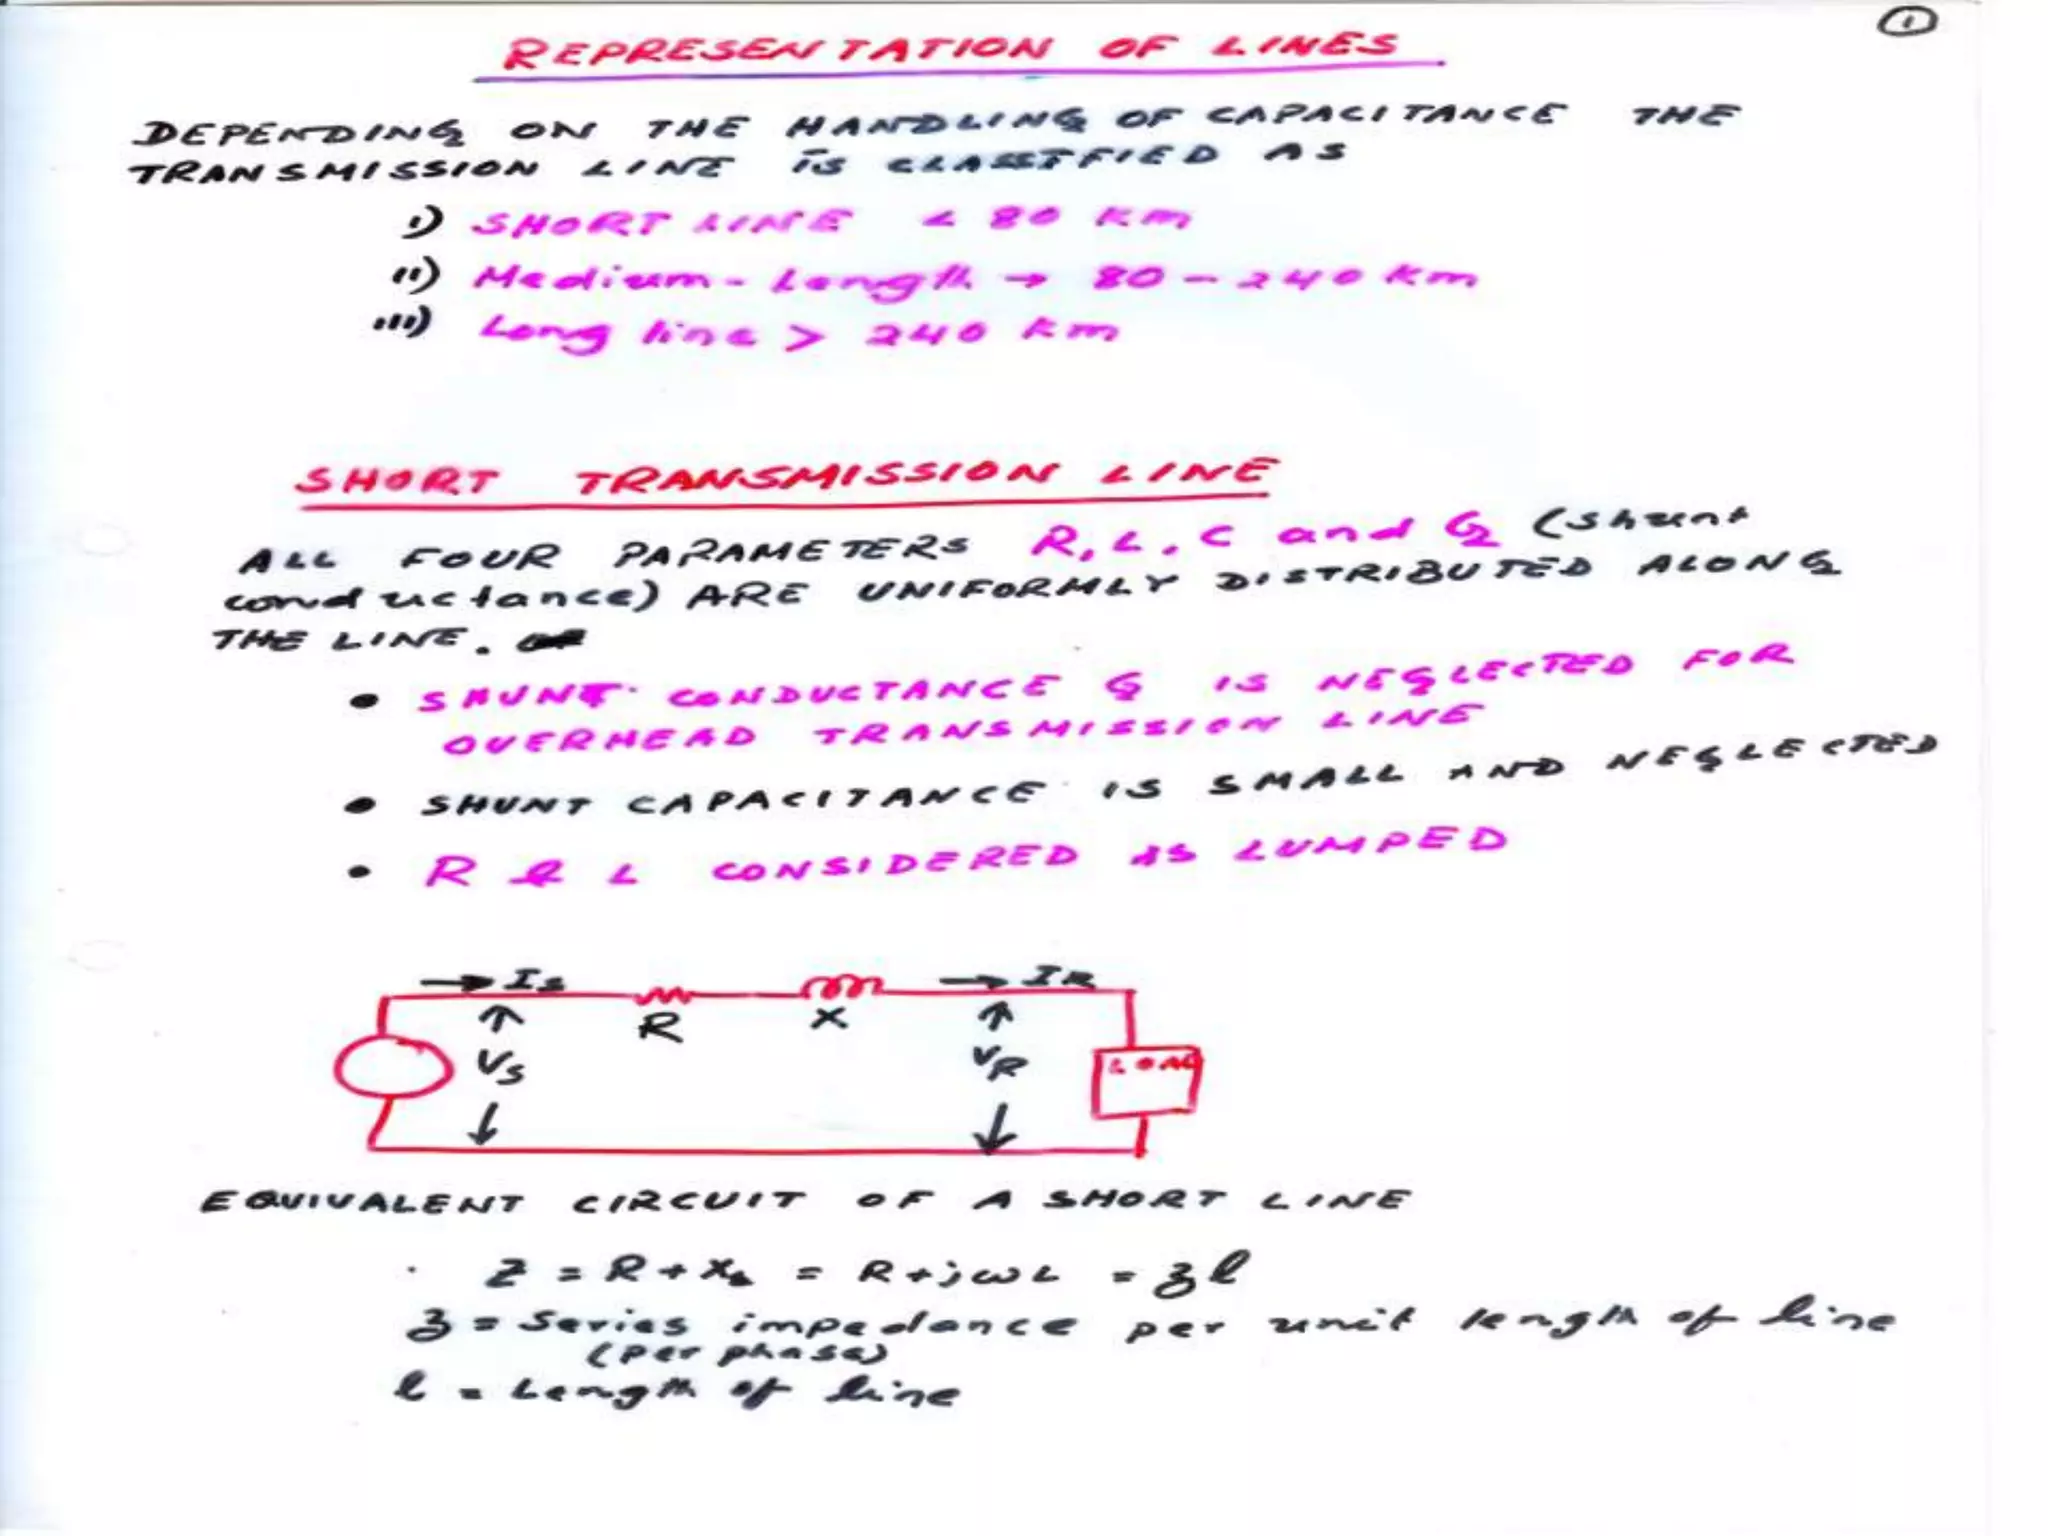 1
REPRESENTATION OF LINES
DEPENDING ON THE HANDLING OF CAPACITANCE THE
TRANSMISSION LINE IS CLASSIFIED AS
i) SHORT LINE < 80 Km
ii) Medium-Length → 80 - 240 Km
iii) Long line > 240 Km
SHORT TRANSMISSION LINE
ALL FOUR PARAMETERS R, L, C and G (Shunt
conductance) ARE UNIFORMLY DISTRIBUTED ALONG
THE LINE.
• SHUNT CONDUCTANCE G IS NEGLECTED FOR
OVERHEAD TRANSMISSION LINE
• SHUNT CAPACITANCE IS SMALL AND NEGLECTED
• R & L CONSIDERED AS LUMPED
→ Is → IR
R X
Vs VR LOAD
EQUIVALENT CIRCUIT OF A SHORT LINE
Z = R + XL = R + jωL = zl
z = Series impedance per unit length of line
(per phase)
l = Length of line